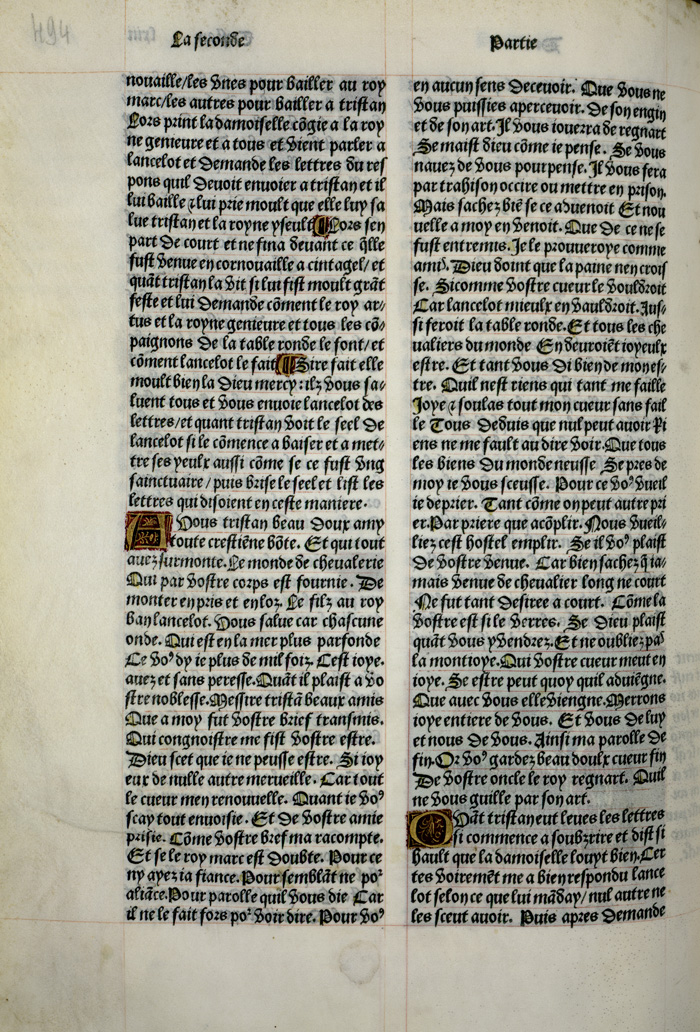 494
La seconde
Partie
nouaille/les vnes pour bailler au roy
marc/les autres pour bailler a tristan
Lors print la damoiselle cõgie a la roy
ne genieure et a tous et vient parler a
lancelot et demande les lettres du res
pons quil deuoit enuoier a tristan et il
lui baille ⁊ lui prie moult que elle luy sa
lue tristan et la royne yseult ¶ Lors sen
part de court et ne fina deuant ce q̃lle
fust venue en cornouaille a cintagel/ et
quãt tristan la vit si lui fist moult grãt
feste et lui demande cõment le roy ar/
tus et la royne genieure et tous les cõ/
paignons de la table ronde le font/ et
cõment lancelot le fait ¶ Sire fait elle
moult bien la dieu mercy: ilz vous sa/
luent tous et vous enuoie lancelot des
lettres/et quant tristan voit le seel de
lancelot si le cõmence a baiser et a met/
tre ses yeulx aussi cõme se ce fust vng
sainctuaire/ puis brise le seel et list les
lettres qui disoient en ceste maniere.
A Vous tristan beau doux amy
toute crestiẽne bõte. Et qui tout
auez surmonte. Le monde de cheualerie
Qui par vostre corps est fournie. De
monter en pris et en loz. Le filz au roy
ban lancelot. Vous salue car chascune
onde. Qui est en la mer plus parfonde
Ce voꝰ dy ie plus de mil foiz. Cest ioye.
auez et sans peresse. Quãt il plaist a vo
stre noblesse. Messire tristã beaux amis
Que a moy fut vostre brief transmis.
Qui congnoistre me fist vostre estre.
Dieu scet que ie ne peusse estre. Si ioy
eux de nulle autre merueille. Car tout
le cueur men renouuelle. Quant ie voꝰ
scay tout enuoisie. Et de vostre amie
prisie. Cõme vostre bref ma racompte.
Et se le roy marc est doubte. Pour ce
ny ayez ia fiance. Pour semblãt ne poꝛ
aliãce. Pour parolle quil vous die Car
il ne le fait fors poꝛ voir dire. Pour voꝰ
en aucun sens deceuoir. Que vous ne
vous puissies aperceuoir. De son engin
et de son art. Il vous iouera de regnart
Se maist dieu cõme ie pense. Se vous
nauez de vous pourpense. Il vous fera
par trahison occire ou mettre en prison.
Mais sachez biẽ se ce aduenoit Et nou
uelle a moy en venoit. Que de ce ne se
fust entremis. Je le prouueroye comme
amis. Dieu doint que la paine nen crois
se. Sicomme vostre cueur le vouldroit
Car lancelot mieulx en vauldroit. Jus/
si feroit la table ronde. Et tous les che
ualiers du monde En deuroiẽt ioyeulx
estre. Et tant vous di bien de mon es/
tre. Quil nest riens qui tant me faille
Joye ⁊ soulas tout mon cueur sans fail
le Tous deduis que nul peut auoir Ri
ens ne me fault au dire voir. Que tous
les biens du monde neusse Se pres de
moy ie vous sceusse. Pour ce voꝰ vueil
ie de prier. Tant cõme on peut autre pri
er. Par priere que acõplir. Nous vueil/
liez cest hostel emplir. Se il voꝰ plaist
de vostre venue. Car bien sachez q̃ ia/
mais venue de cheualier long ne court
Ne fut tant desiree a court. Cõme la
vostre est si le verres. Se dieu plaist
quãt vous y vendrez. Et ne oubliez pas
la montioye. Qui vostre cueur meut en
ioye. Se estre peut quoy quil aduiẽgne.
Que auec vous elle viengne. Merrons
ioye entiere de vous. Et vous de luy
et nous de vous. Ainsi ma parolle de
fin. Or voꝰ gardez beau doulx cueur fin
De vostre oncle le roy regnart. Quil
ne vous guille par son art.
Quãt tristan eut leues les lettres
si commence a soubzrire et dist si
hault que la damoiselle louyt bien. Cer
tes voiremẽt me a bien respondu lance
lot selon ce que lui mãday/ nul autre ne
les sceut auoir. Puis apres demande